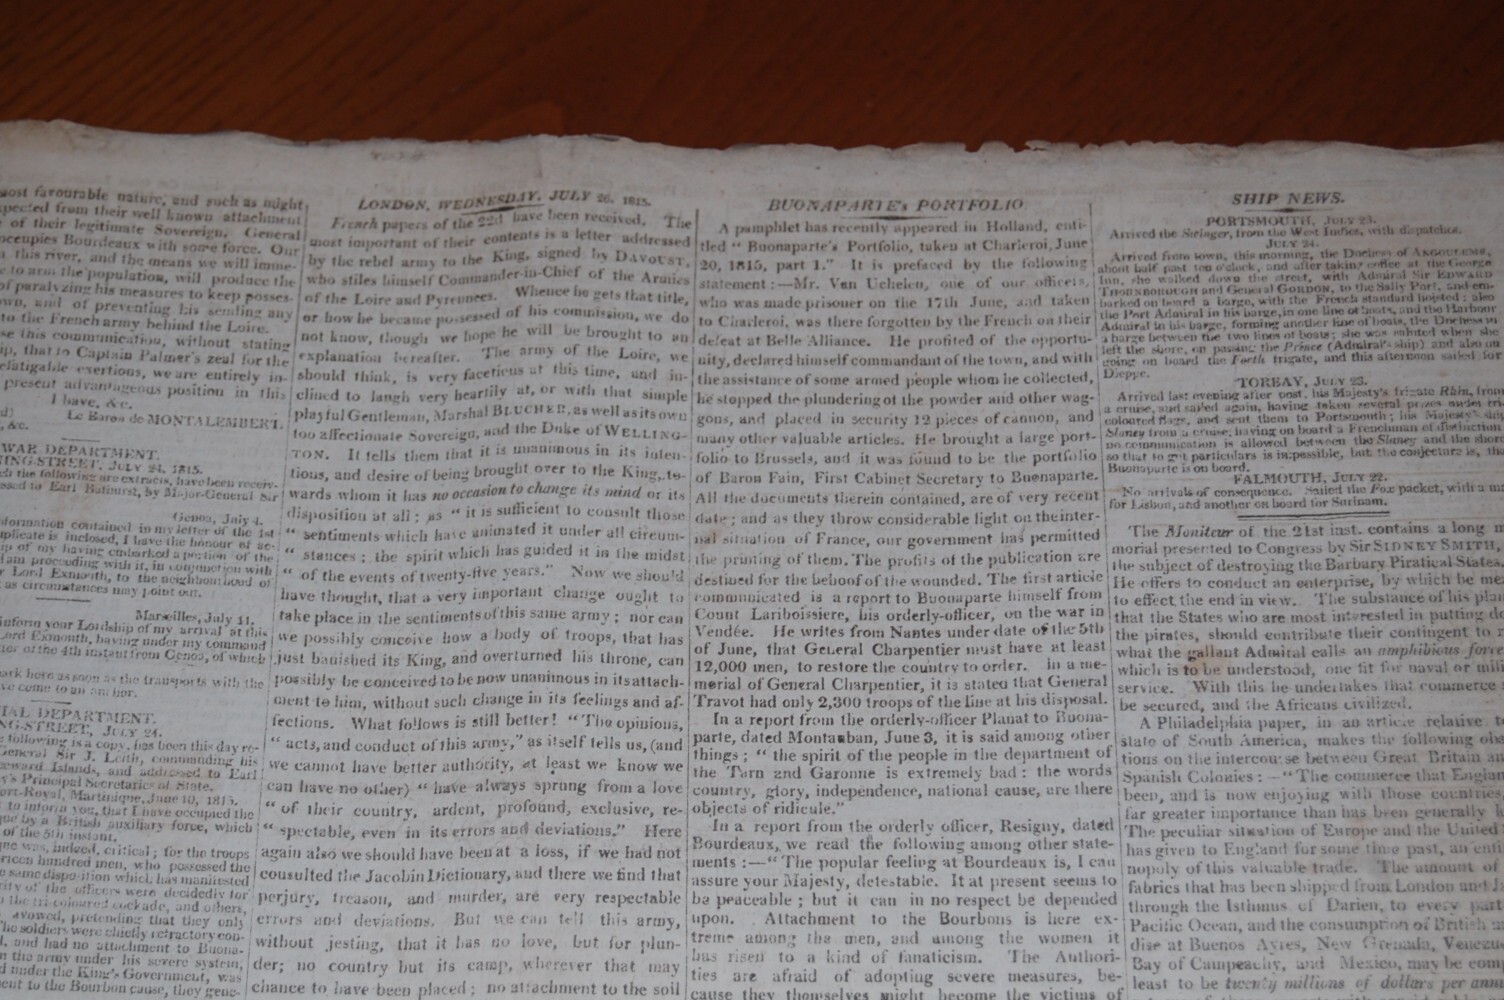 most favourable nature, and such as might
expected from their well known attachment
of their legitimate Sovereign. General
occupies Bourdeaux with some force. Our
this river, and the means we will imme-
to arm the population, will produce the
of paralyzing his measures to keep posses-
own, and of preventing his sending any
to the French army behind the Loire.
se this communication, without stating
up, that to Captain Palmer's zeal for the
efatigable exertions, we are entirely in-
present advantageous position in this
I have, &c.
Le Baron de MONTALEMBERT.
&c.
WAR DEPARTMENT.
NING-STREET, JULY 24, 1815.
the following are extracts, have been receiv-
ssed to Earl Bathurst, by Major-General Sir
Genoa, July 4.
nformation contained in my letter of the 1st
uplicate is inclosed, I have the honour of ac-
of my having embarked a portion of the
am proceeding with it, in conjunction with
Lord Exmouth, to the neighbourhood of
as circumstances may point out.
Marseilles, July 11.
inform your Lordship of my arrival at this
Lord Exmouth, having under my command
ter of the 4th instant from Genoa, of which
ark here as soon as the transports with the
ve come to an anchor.
IAL DEPARTMENT.
NG-STREET, JULY 24.
following is a copy, has been this day re-
General Sir J. Leith, commanding his
eeward Islands, and addressed to Earl
y's Principal Secretaries of State.
ort-Royal, Martinique, June 10, 1815.
to inform you, that I have occupied the
que by a British auxiliary force, which
of the 5th instant.
que was, indeed, critical; for the troops
rteen hundred men, who possessed the
same disposition which has manifested
rity of the officers were decidedly for
the tri-coloured cockade, and others,
avowed, pretending that they only
The soldiers were chiefly refractory con-
, and had no attachment to Buona-
n the army under his severe system,
d under the King's Government, was
ent to the Bourbon cause, they gene-
LONDON, WEDNESDAY, JULY 26, 1815.
French papers of the 22d have been received. The
most important of their contents is a letter addressed
by the rebel army to the King, signed by DAVOUST,
who stiles himself Commander-in-Chief of the Armies
of the Loire and Pyrennees. Whence he gets that title,
or how he became possessed of his commission, we do
not know, though we hope he will be brought to an
explanation hereafter. The army of the Loire, we
should think, is very facetious at this time, and in-
clined to laugh very heartily at, or with that simple
playful Gentleman, Marshal BLUCHER, as well as its own
too affectionate Sovereign, and the Duke of WELLING-
TON. It tells them that it is unanimous in its inten-
tions, and desire of being brought over to the King, to-
wards whom it has no occasion to change its mind or its
disposition at all; as "it is sufficient to consult those
"sentiments which have animated it under all circum-
"stances; the spirit which has guided it in the midst
"of the events of twenty-five years." Now we should
have thought, that a very important change ought to
take place in the sentiments of this same army; nor can
we possibly conceive how a body of troops, that has
just banished its King, and overturned his throne, can
possibly be conceived to be now unanimous in its attach-
ment to him, without such change in its feelings and af-
fections. What follows is still better! "The opinions,
"acts, and conduct of this army," as itself tells us, (and
we cannot have better authority, at least we know we
can have no other) "have always sprung from a love
"of their country, ardent, profound, exclusive, re-
"spectable, even in its errors and deviations." Here
again also we should have been at a loss, if we had not
cousulted the Jacobin Dictionary, and there we find that
perjury, treason, and murder, are very respectable
errors and deviations. But we can tell this army,
without jesting, that it has no love, but for plun-
der; no country but its camp, wherever that may
chance to have been placed; no attachment to the soil
BUONAPARTE's PORTFOLIO
A pamphlet has recently appeared in Holland, enti-
tled "Buonaparte's Portfolio, taken at Charleroi, June
20, 1815, part 1." It is prefaced by the following
statement:—Mr. Van Uchelen, one of our officers,
who was made prisoner on the 17th June, and taken
to Charleroi, was there forgotten by the French on their
defeat at Belle Alliance. He profited of the opportu-
nity, declared himself commandant of the town, and with
the assistance of some armed people whom he collected,
he stopped the plundering of the powder and other wag-
gons, and placed in security 12 pieces of cannon, and
many other valuable articles. He brought a large port-
folio to Brussels, and it was found to be the portfolio
of Baron Fain, First Cabinet Secretary to Buonaparte.
All the documents therein contained, are of very recent
date; and as they throw considerable light on the inter-
nal situation of France, our government has permitted
the printing of them. The profits of the publication are
destined for the behoof of the wounded. The first article
communicated is a report to Buonaparte himself from
Count Lariboissiere, his orderly-officer, on the war in
Vendée. He writes from Nantes under date of the 5th
of June, that General Charpentier must have at least
12,000 men, to restore the country to order. In a me-
morial of General Charpentier, it is stated that General
Travot had only 2,300 troops of the line at his disposal.
In a report from the orderly-officer Planat to Buona-
parte, dated Montauban, June 3, it is said among other
things; "the spirit of the people in the department of
the Tarn and Garonne is extremely bad: the words
country, glory, independence, national cause, are there
objects of ridicule."
In a report from the orderly officer, Resigny, dated
Bourdeaux, we read the following among other state-
ments:—"The popular feeling at Bourdeaux is, I can
assure your Majesty, detestable. It at present seems to
be peaceable; but it can in no respect be depended
upon. Attachment to the Bourbons is here ex-
treme among the men, and among the women it
has risen to a kind of fanaticism. The Authori-
ties are afraid of adopting severe measures, be-
cause they themselves might become the victims of
SHIP NEWS.
PORTSMOUTH, JULY 23.
Arrived the Swinger, from the West Indies, with dispatches.
JULY 24.
Arrived from town, this morning, the Duchess of ANGOULEME,
about half past ten o'clock, and after taking coffee at the George
Inn, she walked down the street, with Admiral Sir EDWARD
THORNBOROUGH and General GORDON, to the Sally Port, and em-
barked on board a barge, with the French standard hoisted; also
the Port Admiral in his barge, in one line of boats, and the Harbour
Admiral in his barge, forming another line of boats, the Duchess in
a barge between the two lines of boats; she was saluted when she
left the shore, on passing the Prince (Admiral's ship) and also on
going on board the Forth frigate, and this afternoon sailed for
Dieppe.
TORBAY, JULY 23.
Arrived last evening after post, his Majesty's frigate Rhin, from
a cruise, and sailed again, having taken several prizes under
coloured flags, and sent them to Portsmouth; his Majesty's
Slaney from a cruise, having on board a Frenchman of distinction
no communication is allowed between the Slaney and the shore
so that to get particulars is impossible, but the conjecture is, tha
Buonaparte is on board.
FALMOUTH, JULY 22.
No arrivals of consequence. Sailed the Fox packet, with a ma
for Lisbon, and another on board for Surinam.
The Moniteur of the 21st inst. contains a long m
morial presented to Congress by Sir SIDNEY SMITH,
the subject of destroying the Barbary Piratical States.
He offers to conduct an enterprise, by which he mea
to effect the end in view. The substance of his plan
that the States who are most interested in putting do
the pirates, should contribute their contingent to
what the gallant Admiral calls an amphibious force
which is to be understood, one fit for naval or mili
service. With this he undertakes that commerce
be secured, and the Africans civilized.
A Philadelphia paper, in an article relative to
state of South America, makes the following obs
tions on the intercourse between Great Britain an
Spanish Colonies:—"The commerce that England
been, and is now enjoying with those countries,
far greater importance than has been generally
The peculiar situation of Europe and the United
has given to England for some time past, an enti
nopoly of this valuable trade. The amount of
fabrics that has been shipped from London and Ja
through the Isthmus of Darien, to every part
Pacific Ocean, and the consumption of British
dise at Buenos Ayres, New Grenada, Venezue
Bay of Campeachy, and Mexico, may be comp
least to be twenty millions of dollars per annu